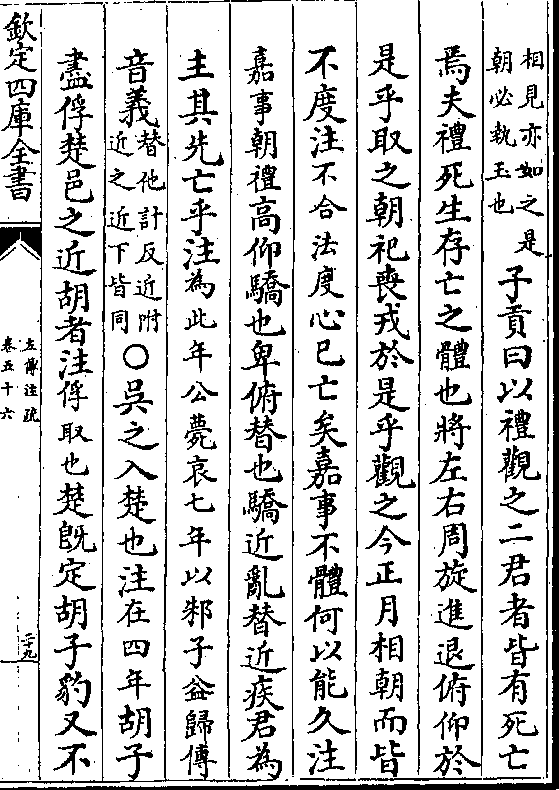 相見亦如之是
朝必執玉也
子貢曰以禮觀之二君者皆有死亡
焉夫禮死生存亡之體也將左右周旋進退俯仰於
是乎取之朝祀喪戎於是乎觀之今正月相朝而皆
不度注不合法度心已亡矣嘉事不體何以能久注
嘉事朝禮高仰驕也卑俯替也驕近亂替近疾君為
主其先亡乎注為此年公薨哀七年以邾子益歸傳
音義
替他計反近附
近之近下皆同
○吳之入楚也注在四年胡子
盡俘楚邑之近胡者注俘取也楚旣定胡子豹又不
欽定四庫全書
左傳注疏
卷五十六
二九